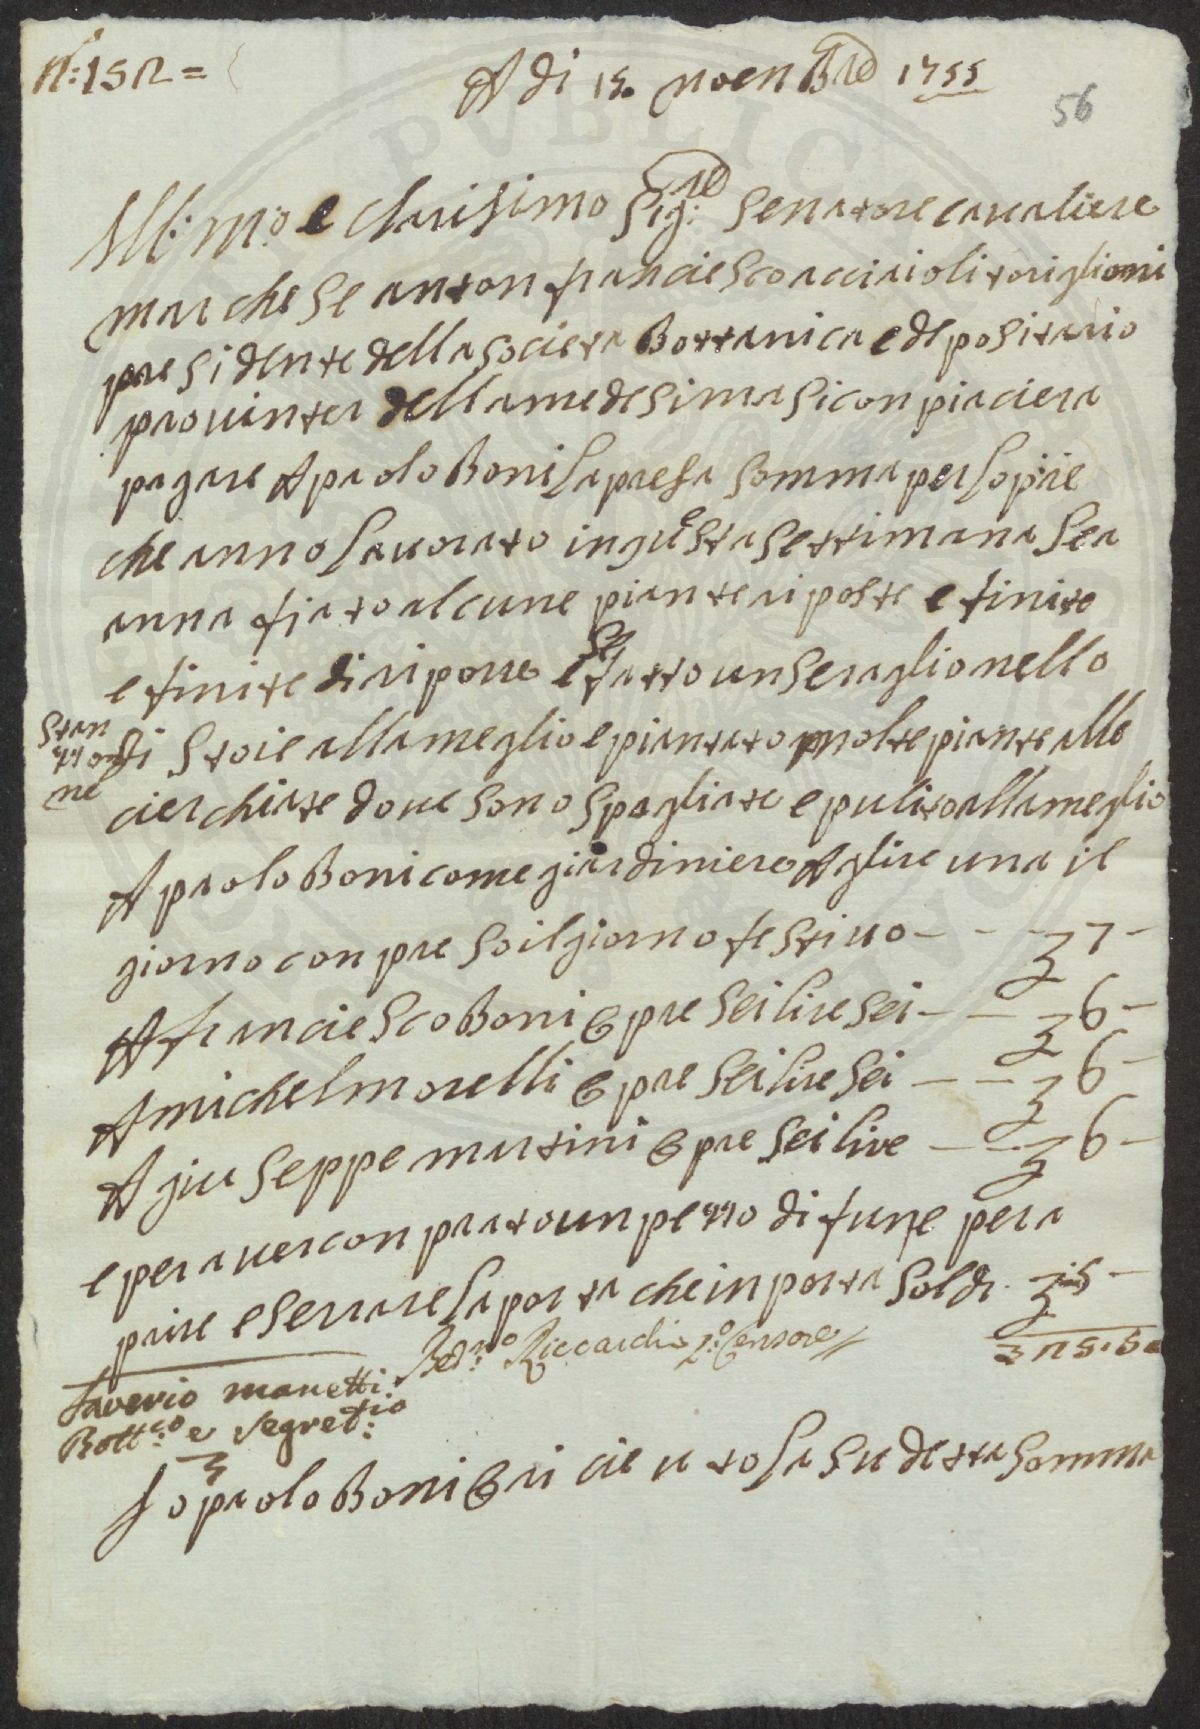 N.o: 152 =
A di 15. noenbre 1755
56
Ill:mo: e Clarisimo Sig:re Senatore caualiere
marchese anton franciesco acciaioli toriglioni
presidente della societa Bottanica e depositario
prouinter della medesima si conpiaciera
pagare A paolo Boni la presa somma per lopere
che anno lauorato in questa settimana sea
anna fiato alcune piante riposte e finito
e finite di riporre e se fatto un seraglio nello
stan
zzo
ne
di stoie alla meglio e piantato molte piante alle
cierchiate doue sono spagliate e pulito alla meglio
A paolo Boni come giardiniero A glire una il
giorno conpreso il giorno festiuo - - - £ 7 -
A franciesco Boni e pre sei lire sei - - £ 6 -
A michel morelli e pre sei lire sei - - £ 6 -
A giuseppe martini e pre sei lire - - £ 6 -
e per auer conprato un pezzo di fune per a
prire e serrare la porta che inporta soldi £ -:5 -
£ 25.5.
Bed:no Riccardi 2:o Censore
Saverio Manetti
Bott:co e Segret:rio
Io paolo Boni e ri cieuto la sudetta somma